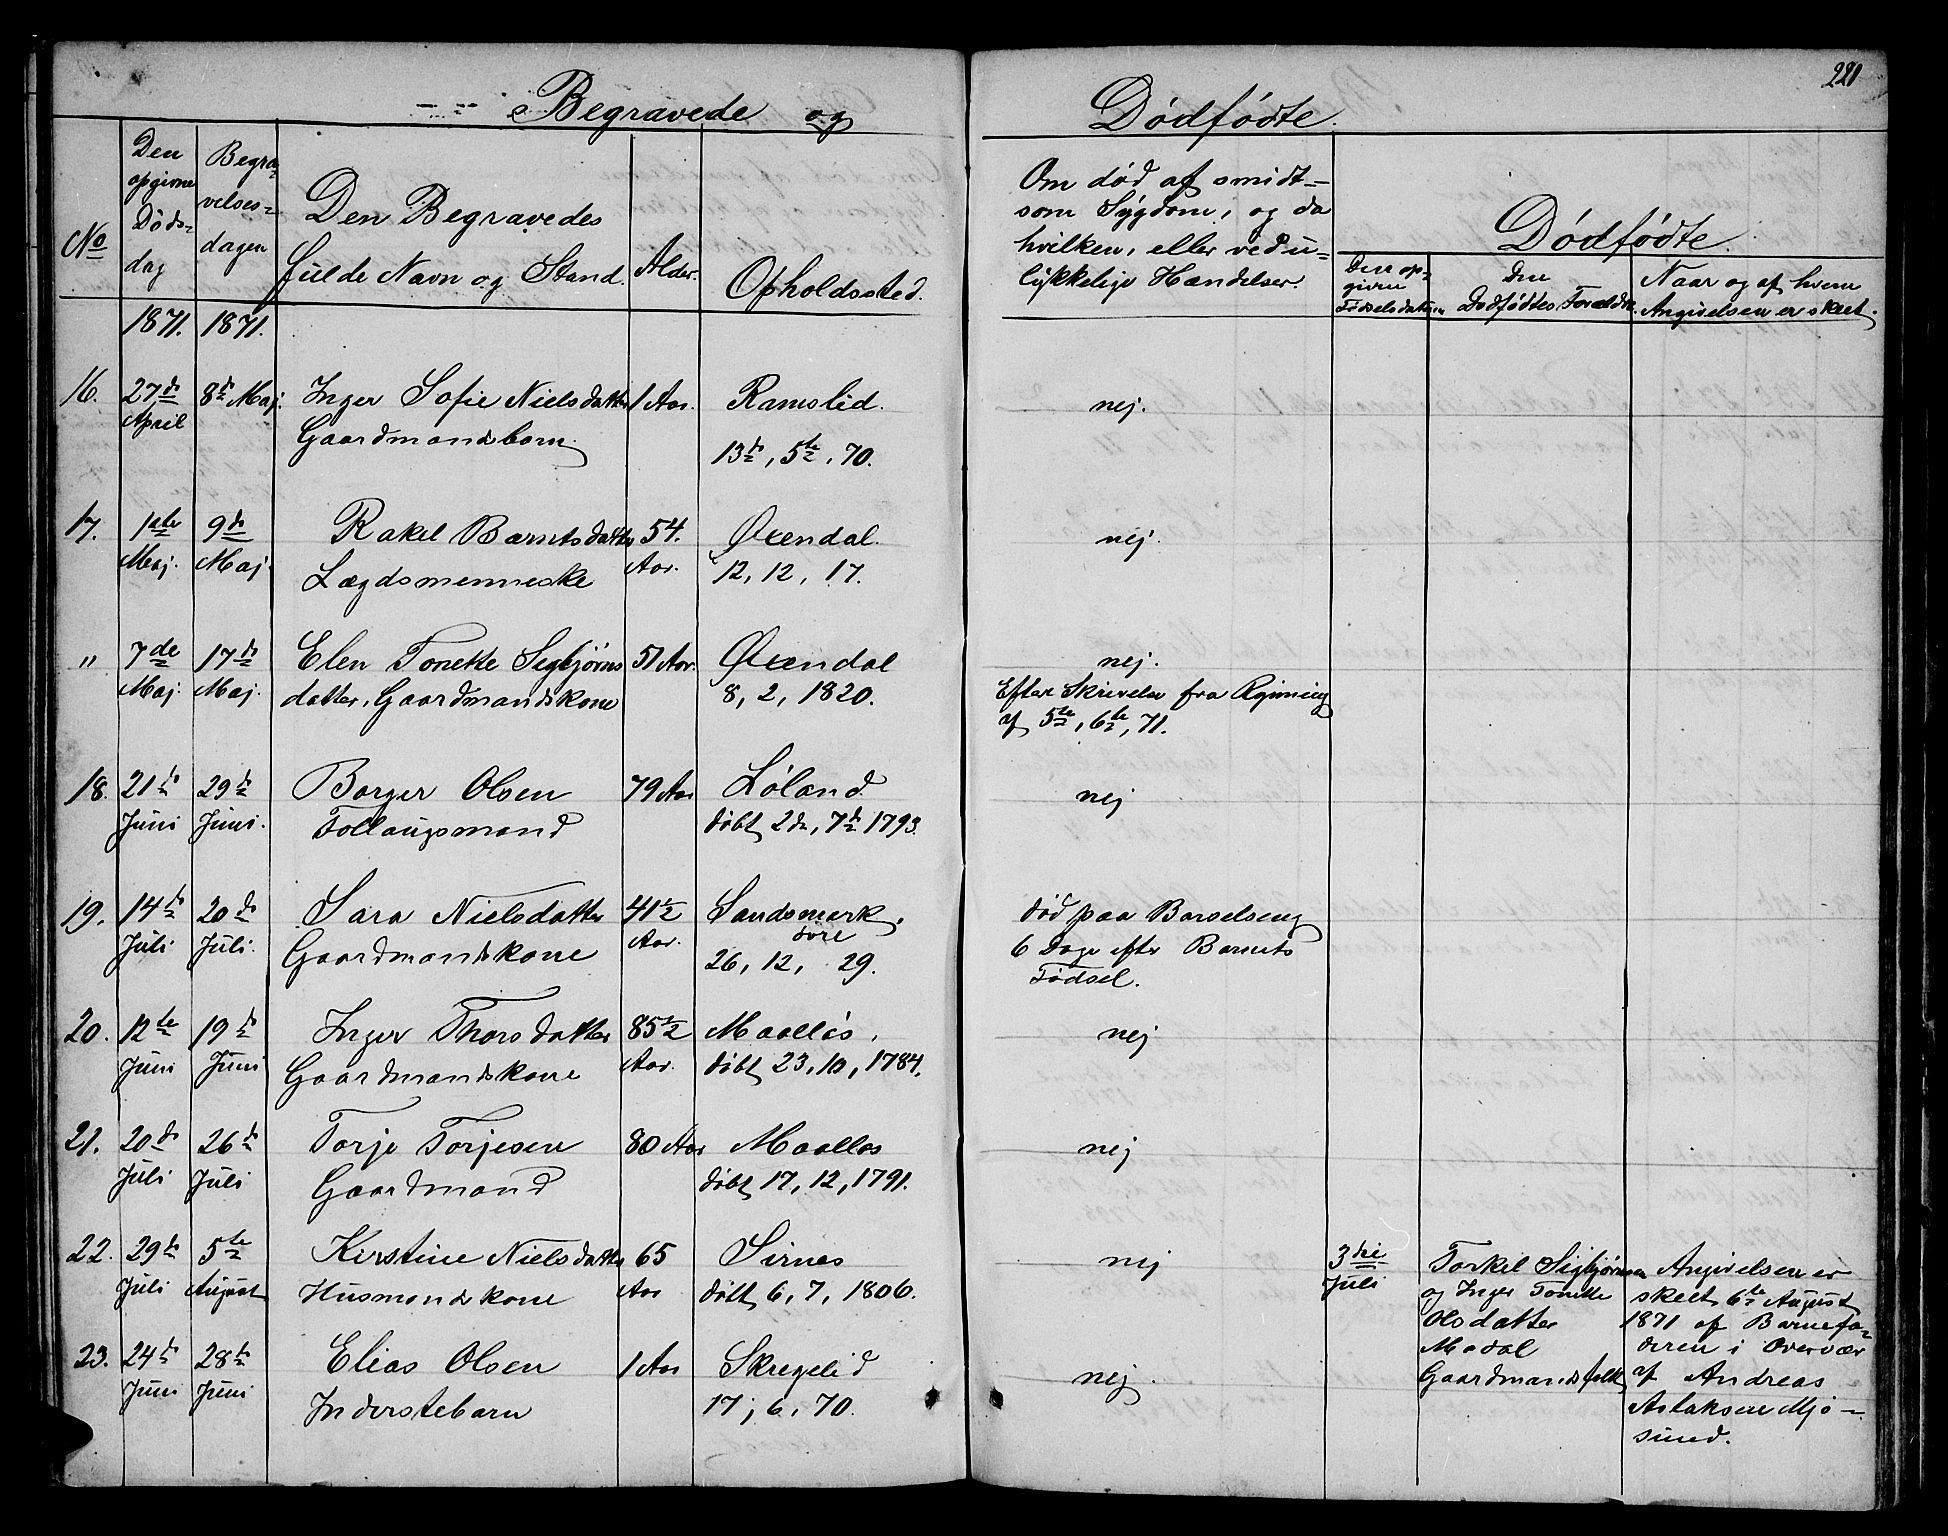 221
Begravede og Dødfødte.
No
Den opgivne Døds-dag
Begra-velses-dagen
Den Begravedes fulde Navn og Stand.
Alder.
Opholdssted.
Om død af smidt-
som Sygdom, og da
hvilken, eller ved u-
lykkelige Hændelser.
Dødfødte.
Den op-given Fødselsdatum
Den Dødfødtes Forældre.
Naar og af hvem Angivelsen er skeet.
1871. 1871.
16. 27de 8de Maj. Inger Sofie Nielsdatter 1 Aar. Ramslid. nej.
April Gaardmandsbarn. 13de, 5te, 70.
17. 1ste 9de Rakel Barntsdatter 54. Øxendal. nej.
Maj. Maj. Lægdsmenneske Aar. 12, 12, 17.
" 7de 17de Elen Tonette Sigbjørns 51 Aar. Øxendal nej.
Maj. Maj. datter, Gaardmandskone 8, 2, 1820. Efter Skrivelse fra
af 5te, 6te, 71.
18. 21de 29de Borger Olsen 79 Aar Løland nej
Juni Juni. Follaugsmand døbt 2de, 7de 1793.
19. 14de 20de Sara Nielsdatter 41 1/2 Sandsmark, død paa Barselseng
Juli Juli. Gaardmandskone Aar. døre 6 Dage efter Barnets
26, 12, 29. Fødsel.
20. 12te 19de Inger Thorsdatter 85 1/2 Maallos, nej
Juni Juni Gaardmandskone Aar. døbt 23, 10, 1784.
21. 20de 26de Torje Torjesen 80 Aar Maallos nej
Juli Juli Gaardmand døbt 17, 12, 1791.
22. 29de 5te Kirstine Nielsdatter 65 Sirnes nej
Juli August Husmandskone Aar døbt 6, 7, 1806.
3die
Juli
Torkel Sigbjørnsen
og Inger Tonette
Olsdatter
Modal
Gaardmandsfolk
Angivelsen er
skeet 6te August
1871 af Barnefa-
deren i Overvær
af Andreas
Aslaksen Mjø-
sund.
23. 24de 28de Elias Olsen 1 Aar Skregelid nej.
Juni Juni Inderstebarn 17, 6, 70.